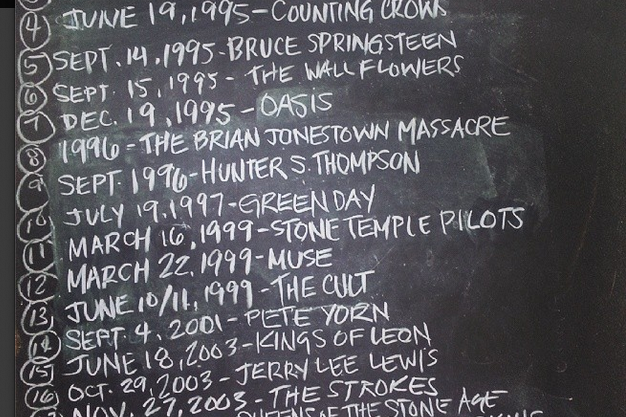 4 JUNE 19, 1995-COUNTING CROWS
5 SEPT. 14, 1995-BRUCE SPRINGSTEEN
6 SEPT. 15, 1995- THE WALLFLOWERS
7 DEC. 19, 1995-OASIS
8 1996-THE BRIAN JONESTOWN MASSACRE
9 SEPT. 1996-HUNTER S. THOMPSON
10 JULY 19, 1997-GREEN DAY
11 MARCH 16, 1999-STONE TEMPLE PILOTS
12 MARCH 22, 1999-MUSE
13 JUNE 10/11, 1999-THE CULT
14 SEPT. 4, 2001- PETE YORN
15 JUNE 18, 2003-KINGS OF LEON
16 OCT. 29, 2003-JERRY LEE LEWIS
NOV. 27, 2003-THE STROKES
QUEENS OF THE STONE AGE